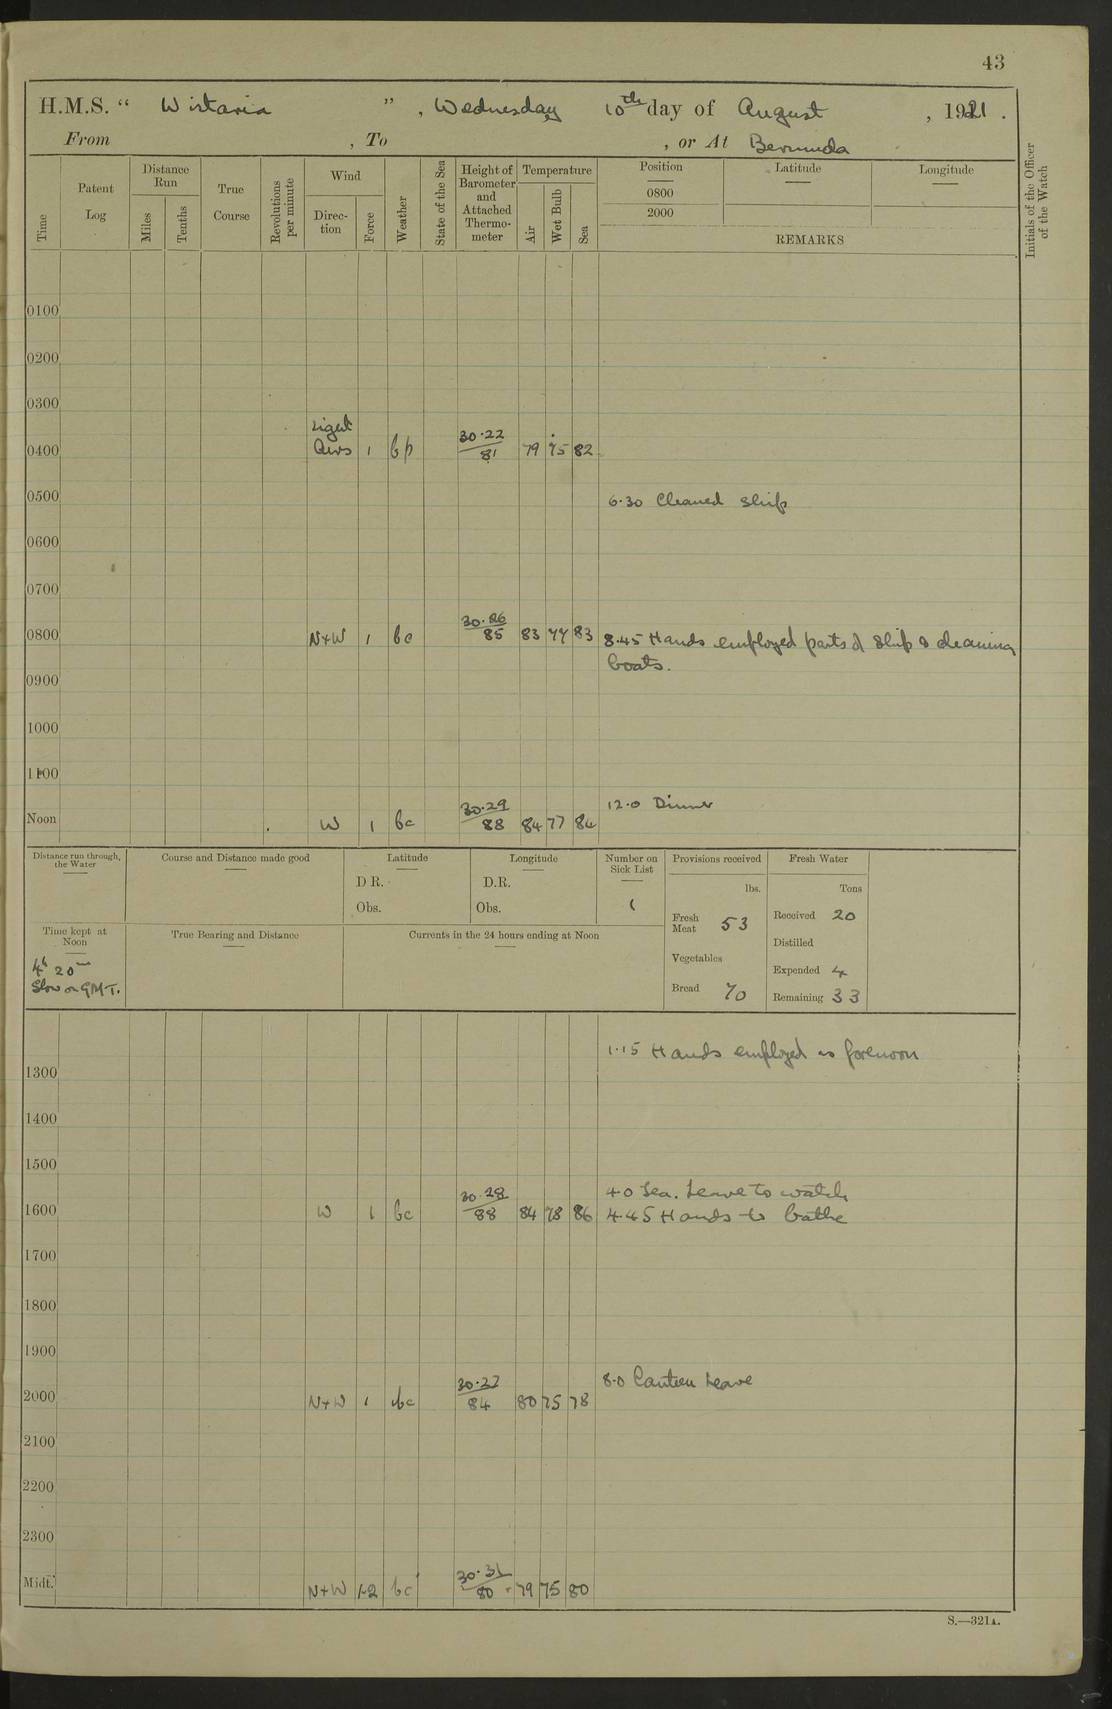 43
H.M.S. “ Wistaria ” , Wednesday 10th day of August , 1921 .
From , To , or At Bermuda
Time
Patent Log
Distance Run
Miles
Tenths
True Course
Revolutions per minute
Wind
Direc-tion
Force
Weather
State of the Sea
Height of Barometer and Attached Thermo-meter
Temperature
Air
Wet Bulb
Sea
Position
0800
2000
Latitude
Longitude
REMARKS
Initials of the Officer of the Watch
0100
0200
0300
Light
0400 Airs 1 bp 30.22 81 79 75 82
0500 6.30 Cleaned ship
0600
0700
0800 N+W 1 bc 30.26 85 83 77 83 8.45 Hands employed parts of ship & cleaning
boats.
0900
1000
1100
12.0 Dinner
Noon W 1 bc 30.29 88 84 77 84
Distance run through, the Water
Course and Distance made good
Latitude
D R.
Obs.
Longitude
D.R.
Obs.
Number on Sick List
1
Provisions received
lbs.
Fresh Meat 53
Vegetables
Bread 70
Fresh Water
Tons
Received 20
Distilled
Expended 4
Remaining 33
Time kept at Noon
4h 20m
Slow on GMT.
True Bearing and Distance
Currents in the 24 hours ending at Noon
1.15 Hands employed as forenoon
1300
1400
1500
4.0 Tea. Leave to watch
1600 W 1 bc 30.28 88 84 78 86 4.45 Hands to bathe
1700
1800
1900
8.0 Canteen Leave
2000 N+W 1 bc 30.27 84 80 75 78
2100
2200
2300
Midt. N+W 1-2 bc 30.31 80 79 75 80
S.—321A.